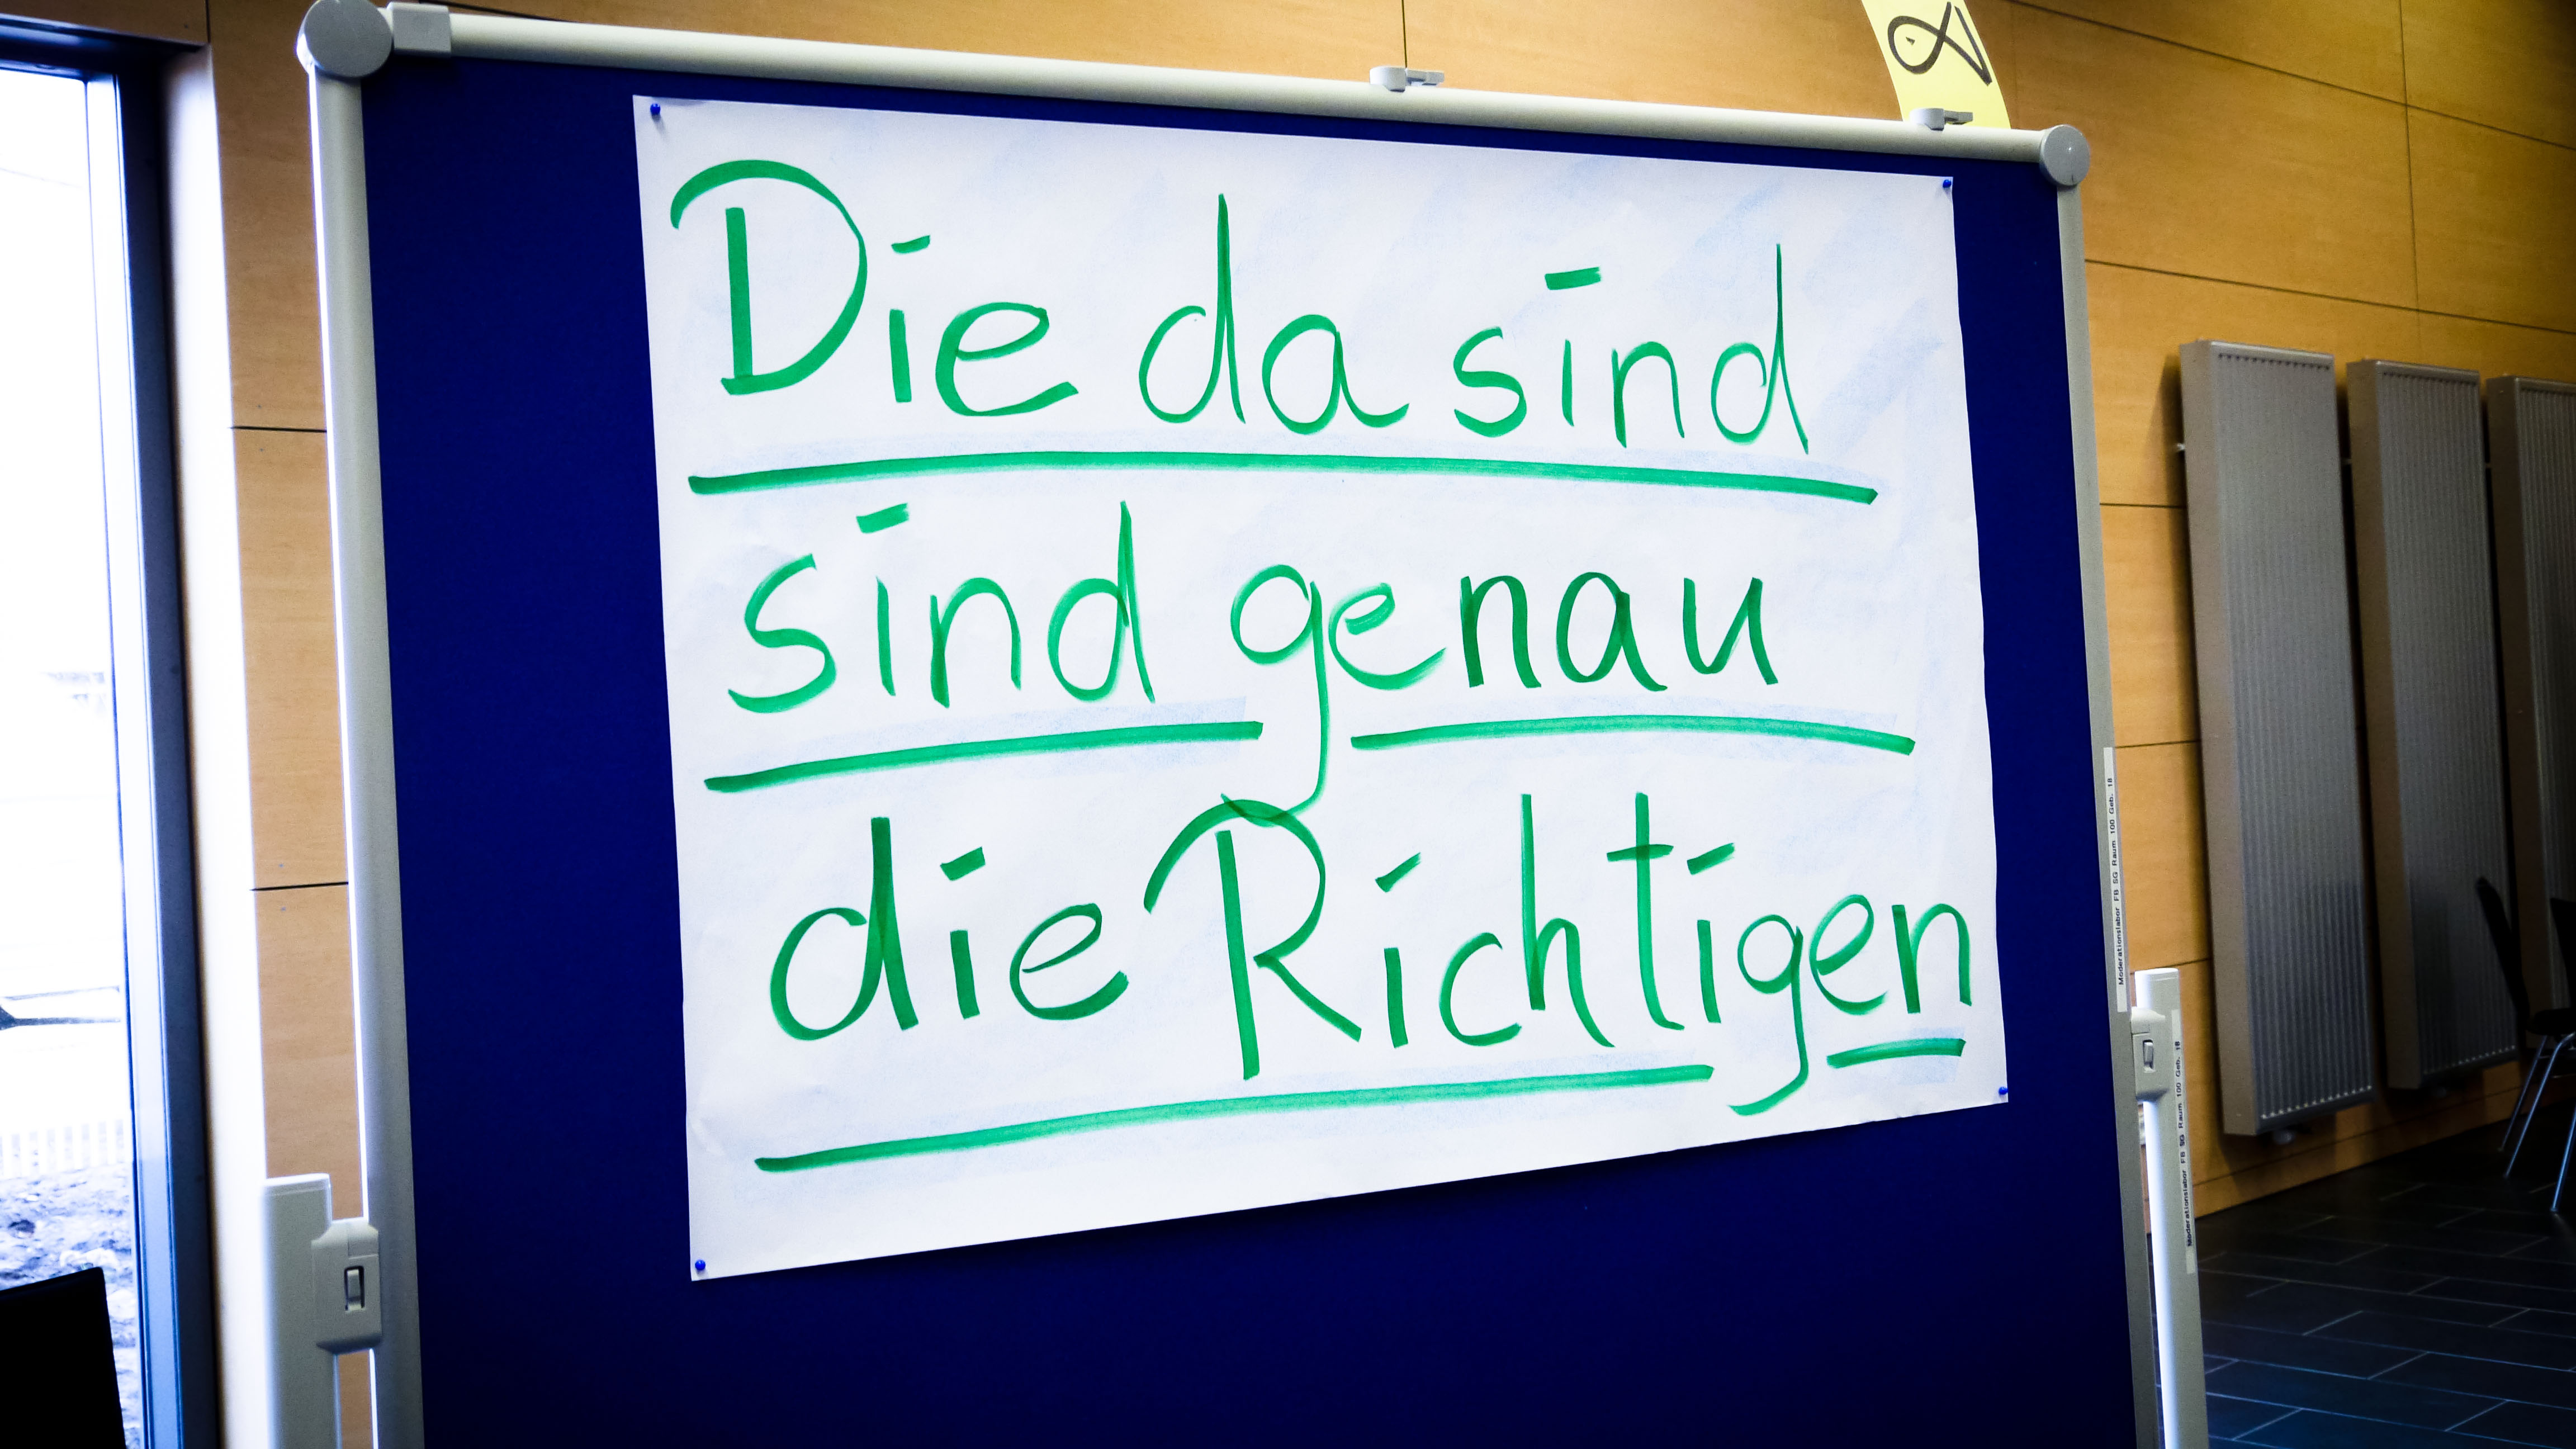 Die da sind
sind genau
die Richtigen
Moderationslabor FB SG Raum 100 Geb. 18
Moderationslabor FB SG Raum 100 Geb. 18